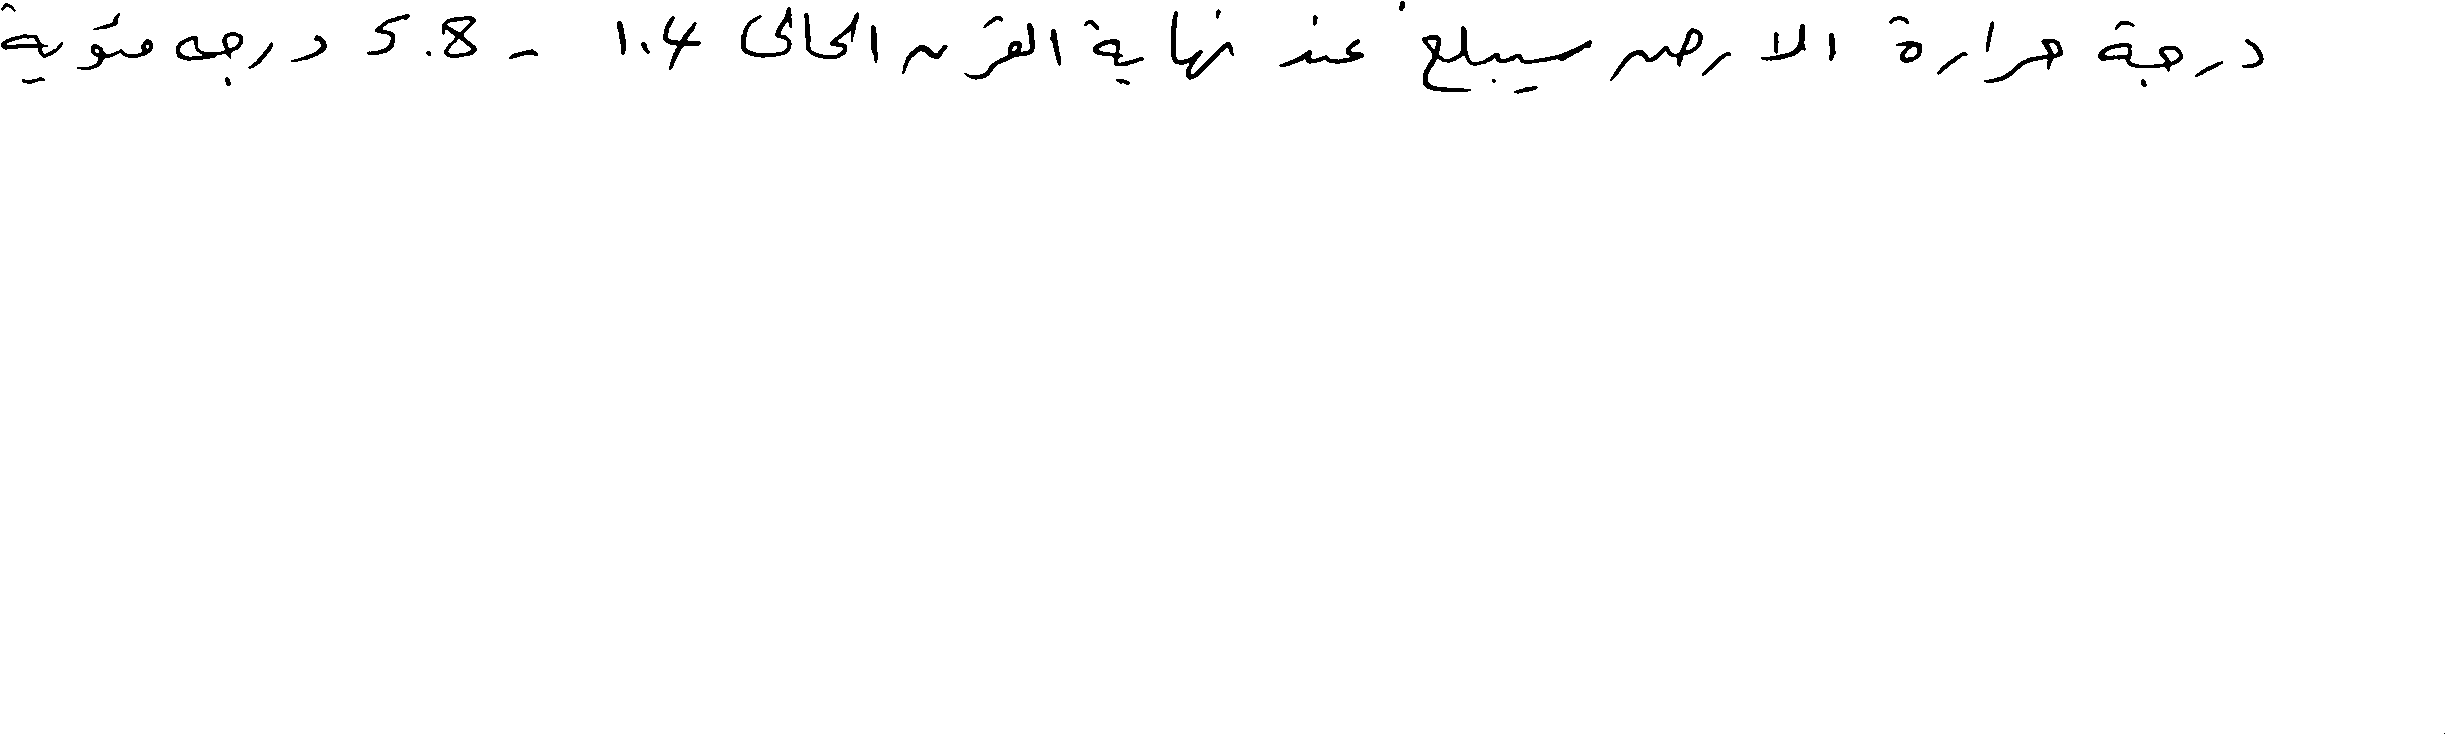 درجة حرارة الارض سيبلغ عند نهاية القرن الحالى 1.4 - 5.8 درجه مئوية